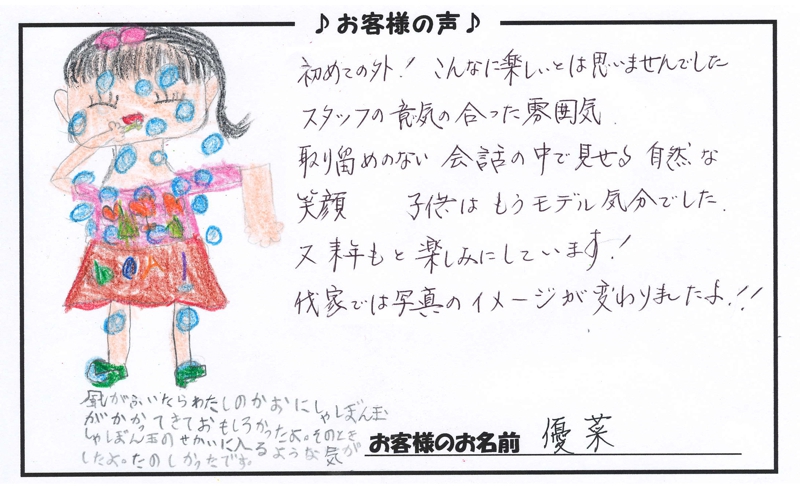 ♪お客様の声♪
初めての外! こんなに楽しいとは思いませんでした
スタッフの意気の合った雰囲気.
取り留めのない 会話の中で見せる 自然な
笑顔 子供は もうモデル気分でした.
又 来年もと 楽しみにしています!
我家では写真のイメージが変わりましたよ!!
風がふいたらわたしのかおにしゃぼん玉
がかかってきておもしろかったよ。そのとき
しゃぼん玉のせかいに入るような気が
したよ。たのしかったです。
お客様のお名前 優菜